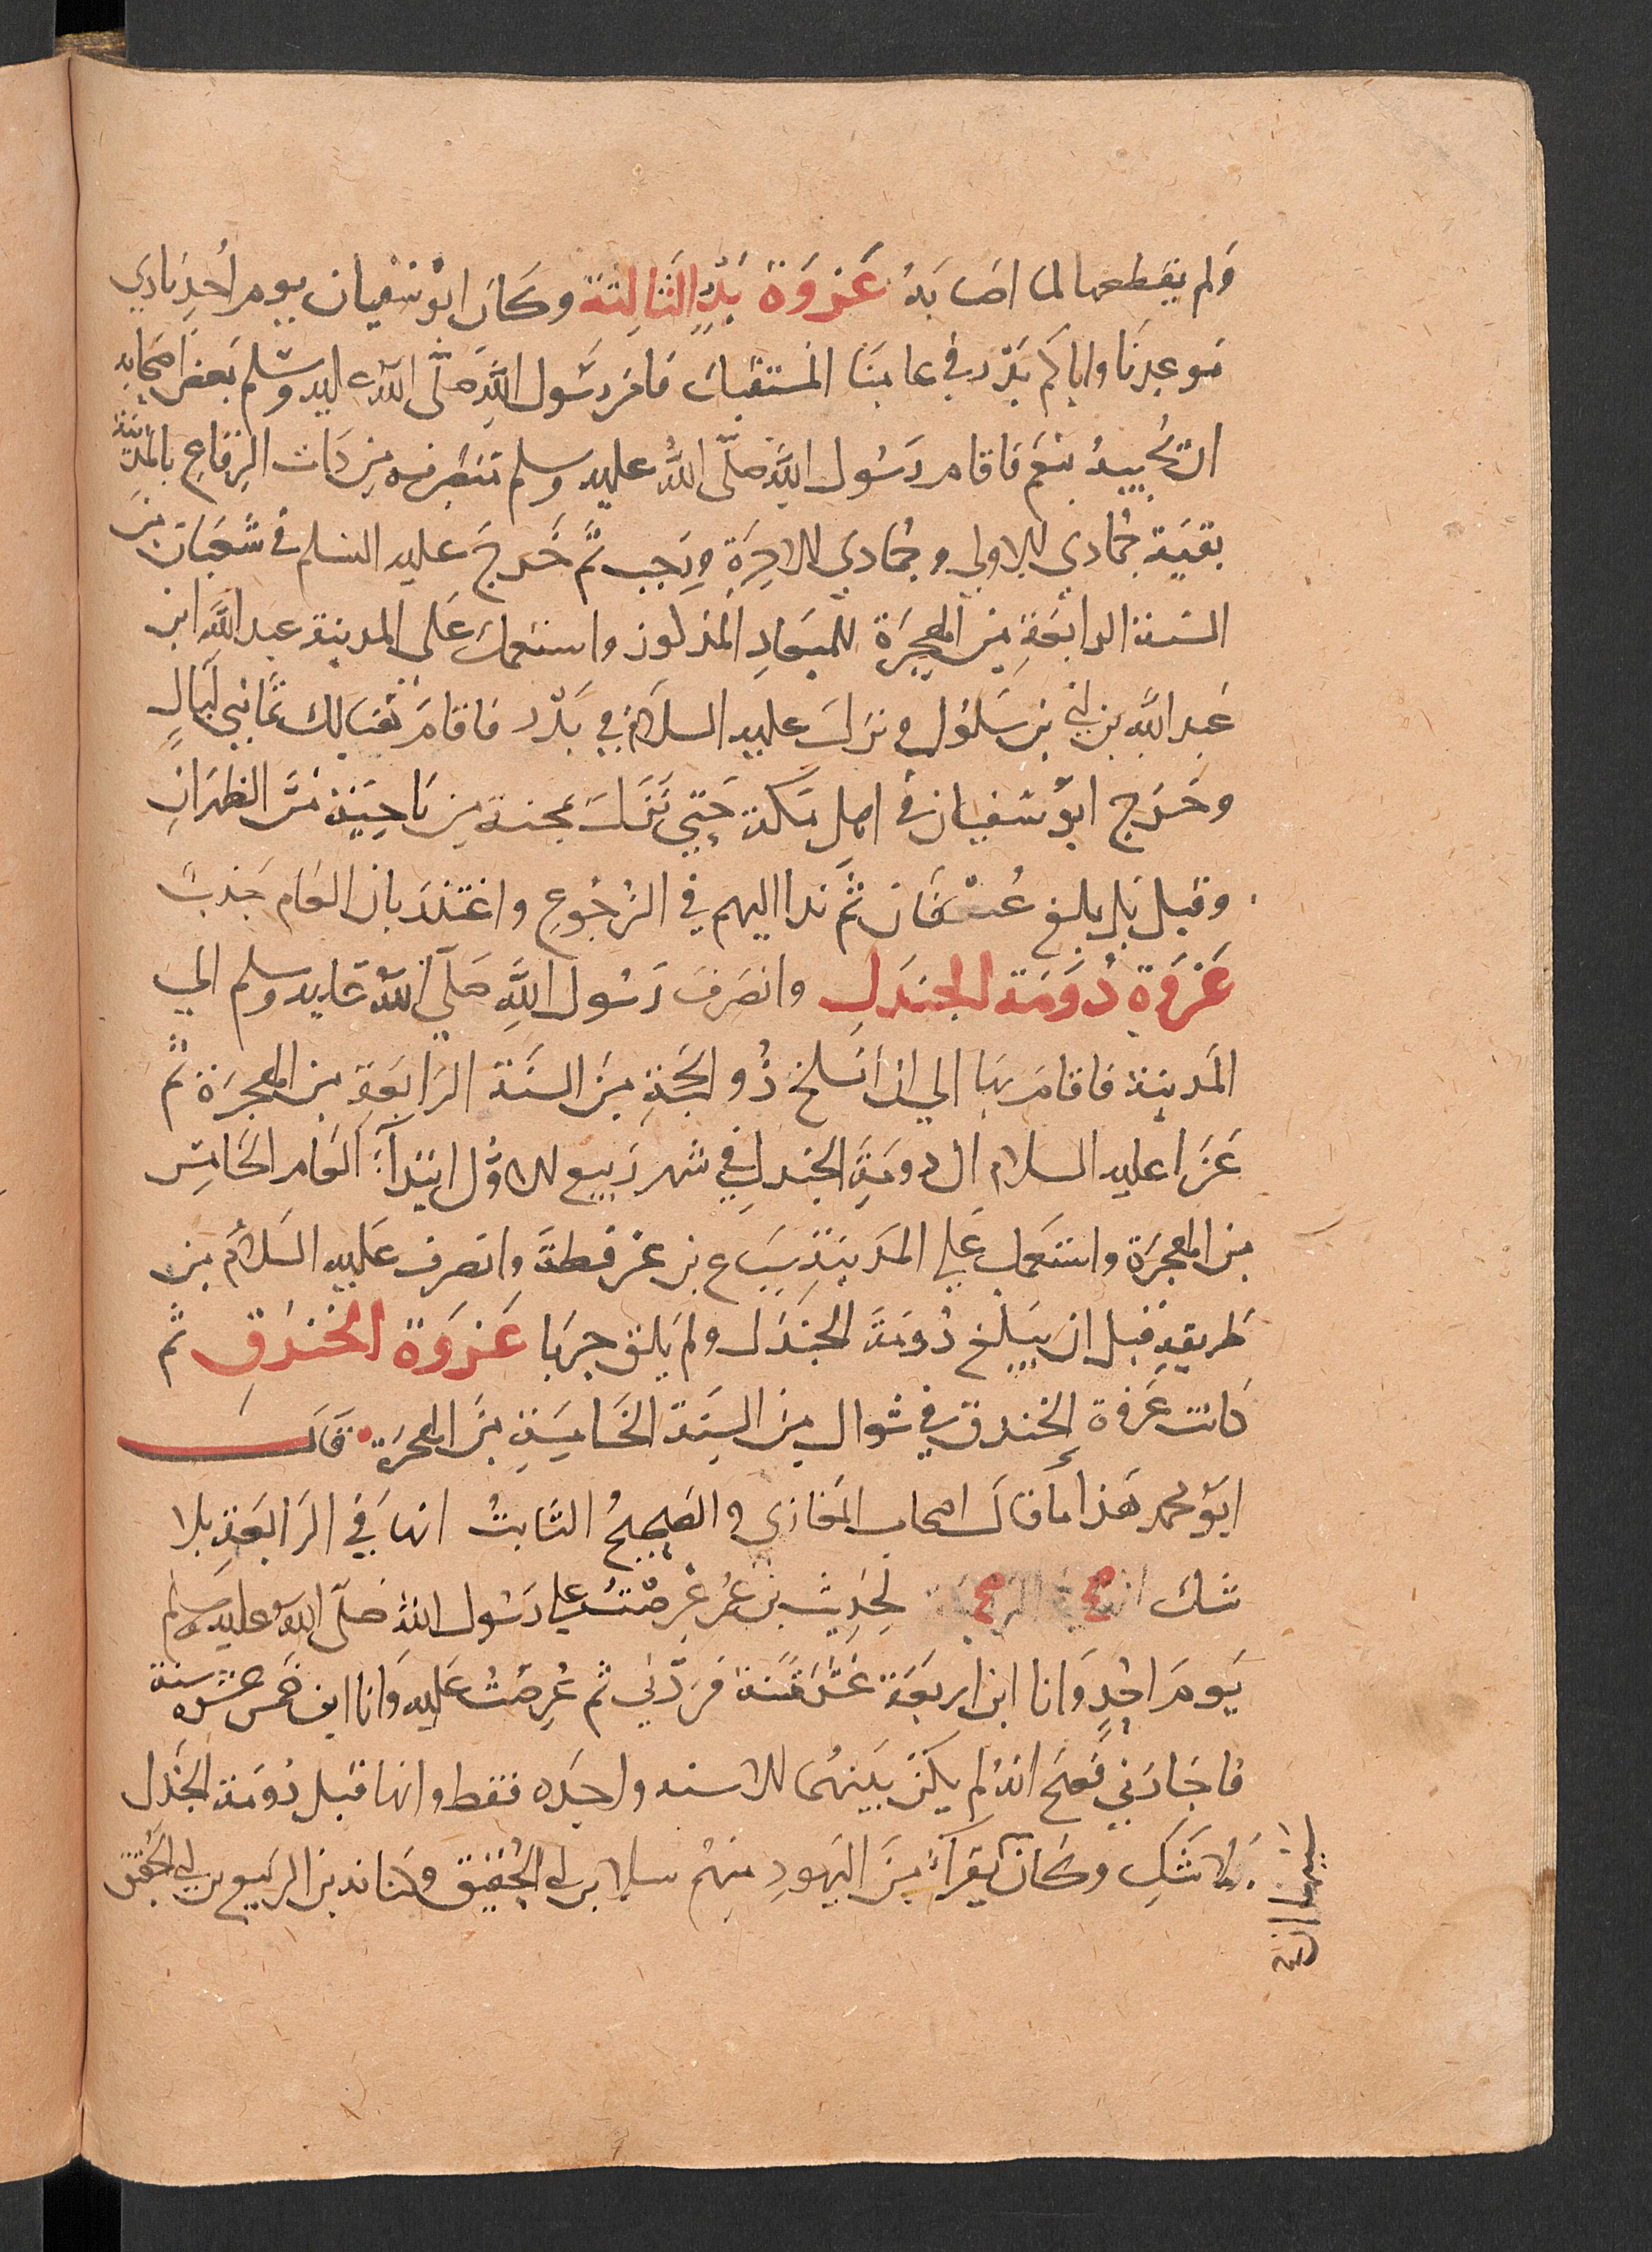 ولم يقطعها لما اصابه غَزوَة بَدْرٍ الثَالِثة وكَان ابُو سُفيان يوم أُحدٍ نادي
موعدنَا واياكم بَدْر في عامنَا المستقبل فامَر رسُول اللهِ صَلّى اللهُ عليه وسَلم بَعض اصحابه
ان يُجيبهُ بنعَم فاقام رَسُول اللهِ صَلّى اللهُ عليه وسلم منصَرفه من ذات الرِقاعِ بالمَدينَة
بقيَة جُمادي الاولي وجُمادي الاخِرَة ورَجب ثُمّ خَرج عليه السلم في شَعبَان من
السَنة الرابعَةِ من الهجرَة للميعَادِ المذكور واستعمل عَلى المدينة عبد اللهِ ابن
عَبد اللهِ بن اُبي بن سَلول ونزلَ عليه السلام في بَدْر فاقامَ هُنالك ثمانِي ليَالٍ
وخَرج ابُو سُفيان في اهل مَكة حَتي نَزلَ مجنة من نَاحِيَة مَرّ الظَهرَانِ
وقيل بل بلغ عُسْفَان ثُمَّ بدا اليهم في الرُجُوعِ واعتَذَر بان العَام جَدبٌ
غَزوَة دُومَة الجَندَلِ وانصَرفَ رَسُول اللهِ صَلّى اللهُ عَليه وسلم الي
المَدينة فاقامَ بهَا الي ان انسلخ ذُو الحِجَةِ مِن السَنَة الرَابعَةِ من الهجرَة ثُم
غَزا عليه السلام الى دومَةِ الجندلِ في شهر رَبيع الاوَّل ابتدَآءَ العَام الخَامِسِ
من الهجرَة واستَعمل عَلي المَدينَةِ سِبَاع بن عرفطةَ وانصرف عَليه السَلامُ من
طريقهِ قبل ان يبلغ دُومَة الجندَل ولم يَلق حربَا غَزوَة الخَندَقِ ثُم
كانت غَزوة الخندق في شوال من السَنَة الخَامِسَةِ مِنَ الهجرَةِ قَالَ
ابُو محمد هَذا مَا قالَ اصحاب المَغازي والصَحِيحُ الثَابتُ انهَا في الرَابعَةِ بلا
شك لحَدِيث بن عُمَر عُرِضْتُ علي رَسُول اللهِ صَلّى اللهُ عليه وسلم
يَومَ احُدٍ وَانا ابن اربعَة عَشَر سَنة فرَدَّني ثم عُرِضتُ عَليه وَانا ابن خمس عَشرَه سنة
فاجَازَني فَصَحَ انهُ لم يكن بَينهُما الا سنه واحِدَه فقط وانها قَبل دُومَة الجَندل
بلا شَكِ وكَان نَفَرٌ مِنَ اليَهودِ منهُم سلام بن ابي الحُقيَق وكنانه بن الربيع بن ابي الحُقيق